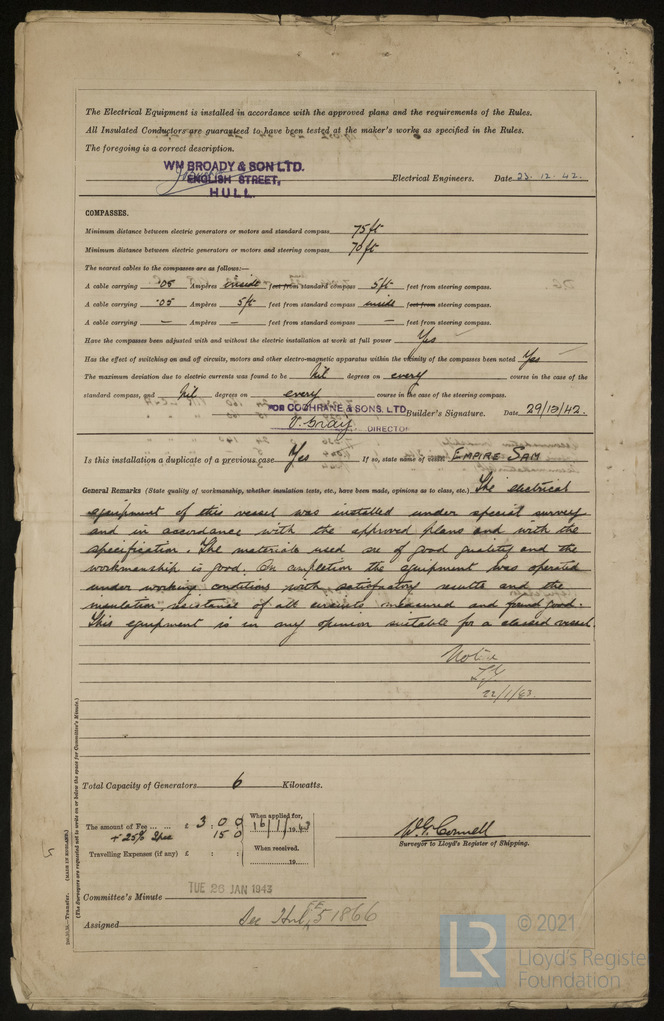 The Electrical Equipment is installed in accordance with the approved plans and the requirements of the Rules.
All Insulated Conductors are guaranteed to have been tested at the maker's works as specified in the Rules.
The foregoing is a correct description.
WM BROADY & SON LTD.
ENGLISH STREET,
HULL.
Electrical Engineers. Date 23.12.42.
COMPASSES.
Minimum distance between electric generators or motors and standard compass 75 ft
Minimum distance between electric generators or motors and steering compass 70 ft
The nearest cables to the compasses are as follows:—
A cable carrying .05 Ampères inside feet from standard compass 5 ft feet from steering compass.
A cable carrying .05 Ampères 5 ft feet from standard compass inside feet from steering compass.
A cable carrying — Ampères — feet from standard compass — feet from steering compass.
Have the compasses been adjusted with and without the electric installation at work at full power Yes
Has the effect of switching on and off circuits, motors and other electro-magnetic apparatus within the vicinity of the compasses been noted Yes
The maximum deviation due to electric currents was found to be Nil degrees on every course in the case of the
standard compass, and Nil degrees on every course in the case of the steering compass.
FOR COCHRANE & SONS, LTD. Builder's Signature. Date 29/10/42.
DIRECTOR
Is this installation a duplicate of a previous case Yes If so, state name of vessel EMPIRE SAM
General Remarks (State quality of workmanship, whether insulation tests, etc., have been made, opinions as to class, etc.) The electrical
equipment of this vessel was installed under special survey
and in accordance with the approved plans and with the
specification. The materials used are of good quality and the
workmanship is good. On completion the equipment was operated
under working conditions with satisfactory results and the
insulation resistance of all circuits measured and found good.
This equipment is in my opinion suitable for a classed vessel
Noted
22/1/43
Total Capacity of Generators 6 Kilowatts.
The amount of Fee ... ... £ 3 : 0 : 0 When applied for, 16/1/1943
+ 25% 15 0
Travelling Expenses (if any) £ : : When received, 19
W.G. Connell
Surveyor to Lloyd's Register of Shipping.
TUE 26 JAN 1943
Committee's Minute
Assigned See Hul. F.E. 51866
(MADE IN ENGLAND.)
Transfer.
(The Surveyors are requested not to write on or below the space for Committee's Minute.)
5
LR
© 2021
Lloyd's Register
Foundation